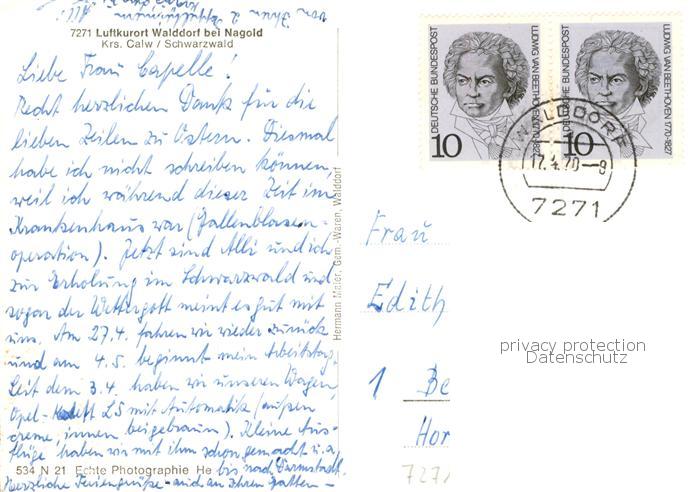 7271 Luftkurort Walddorf bei Nagold
Krs. Calw / Schwarzwald
Liebe Frau Capelle!
Recht herzlichen Dank für die
lieben Zeilen zu Ostern. Diesmal
habe ich nicht schreiben können,
weil ich während dieser Zeit im
Krankenhaus war (Gallenblasen-
operation). Jetzt sind Alli und ich
zur Erholung im Schwarzwald und
sogar der Wettergott meint es gut mit
uns. Am 27.4. fahren wir wieder zurück
und am 4.5. beginnt mein Arbeitstag.
Seit dem 3.4. haben wir unseren Wagen,
Opel-Kadett LS mit Automatik (außen
creme, innen beigebraun). Kleine Aus-
flüge haben wir mit ihm schon gemacht u.a.
bis nach Darmstadt.
Herzliche Feriengrüße - auch an Ihren Gatten -
von Ihren
534 N 21 Echte Photographie He
Hermann Maier, Gem.-Waren, Walddorf
DEUTSCHE BUNDESPOST
10
LUDWIG VAN BEETHOVEN 1770-1827
DEUTSCHE BUNDESPOST
10
LUDWIG VAN BEETHOVEN 1770-1827
WALDDORF
17.4.70-9
7271
Frau
Edith
1 Be
Hor
727
privacy protection
Datenschutz